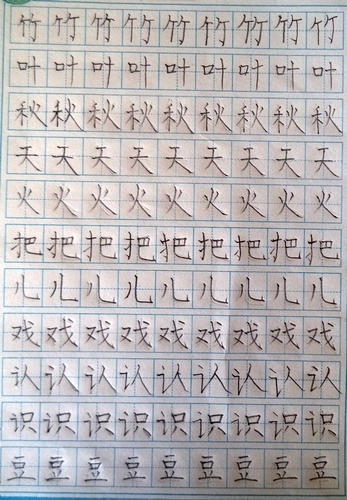 竹竹竹竹竹竹竹竹竹
叶叶叶叶叶叶叶叶叶
秋秋秋秋秋秋秋秋秋
天天天天天天天天天
火火火火火火火火火
把把把把把把把把把
儿儿儿儿儿儿儿儿儿
戏戏戏戏戏戏戏戏戏
认认认认认认认认认
识识识识识识识识识
豆豆豆豆豆豆豆豆豆